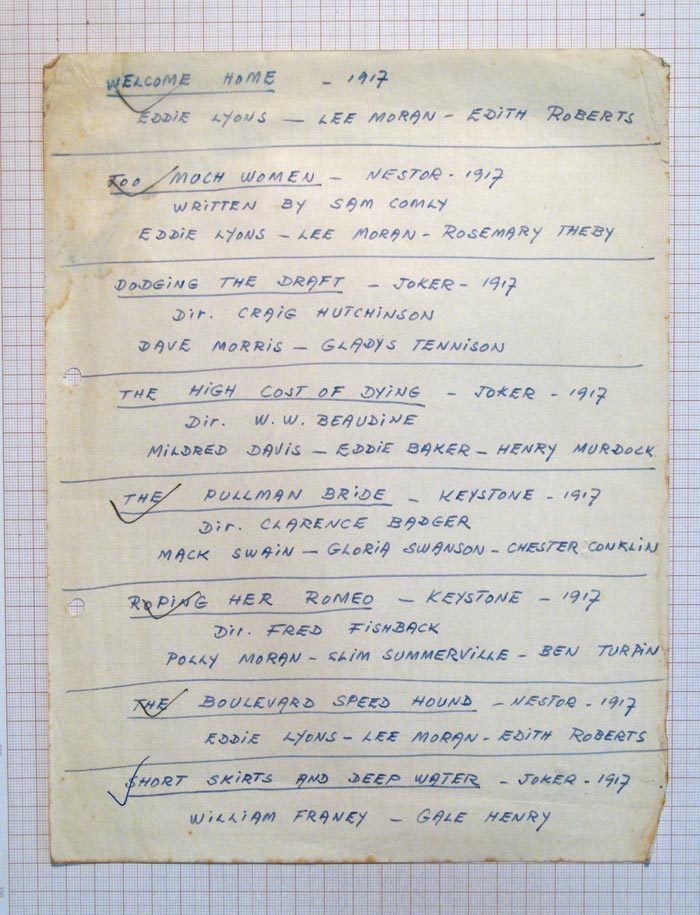 WELCOME HOME - 1917
EDDIE LYONS — LEE MORAN - EDITH ROBERTS
TOO MUCH WOMEN - NESTOR - 1917
WRITTEN BY SAM COMLY
EDDIE LYONS - LEE MORAN - ROSEMARY THEBY
DODGING THE DRAFT - JOKER - 1917
Dir. CRAIG HUTCHINSON
DAVE MORRIS - GLADYS TENNISON
THE HIGH COST OF DYING - JOKER - 1917
Dir. W.W. BEAUDINE
MILDRED DAVIS - EDDIE BAKER - HENRY MURDOCK
THE PULLMAN BRIDE - KEYSTONE - 1917
Dir. CLARENCE BADGER
MACK SWAIN - GLORIA SWANSON - CHESTER CONKLIN
ROPING HER ROMEO - KEYSTONE - 1917
Dir. FRED FISHBACK
POLLY MORAN - SLIM SUMMERVILLE - BEN TURPIN
THE BOULEVARD SPEED HOUND - NESTOR - 1917
EDDIE LYONS - LEE MORAN - EDITH ROBERTS
SHORT SKIRTS AND DEEP WATER - JOKER - 1917
WILLIAM FRANEY - GALE HENRY